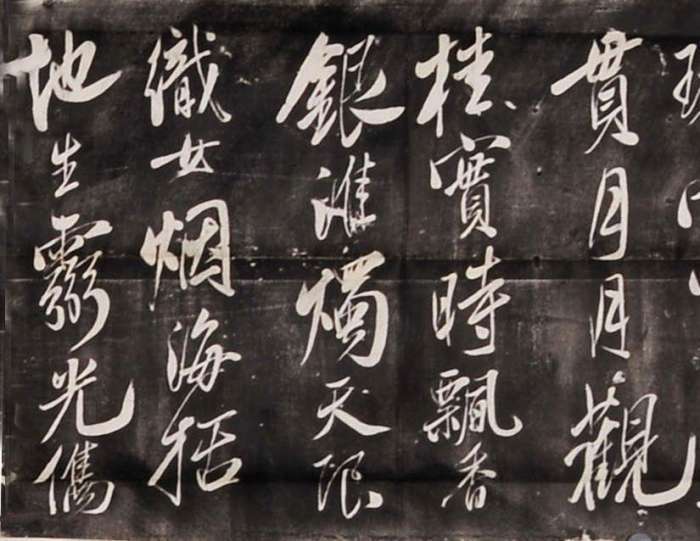 貫月月觀
桂實時飄香
銀淮燭天限
織女烟海括
地生靈光儁